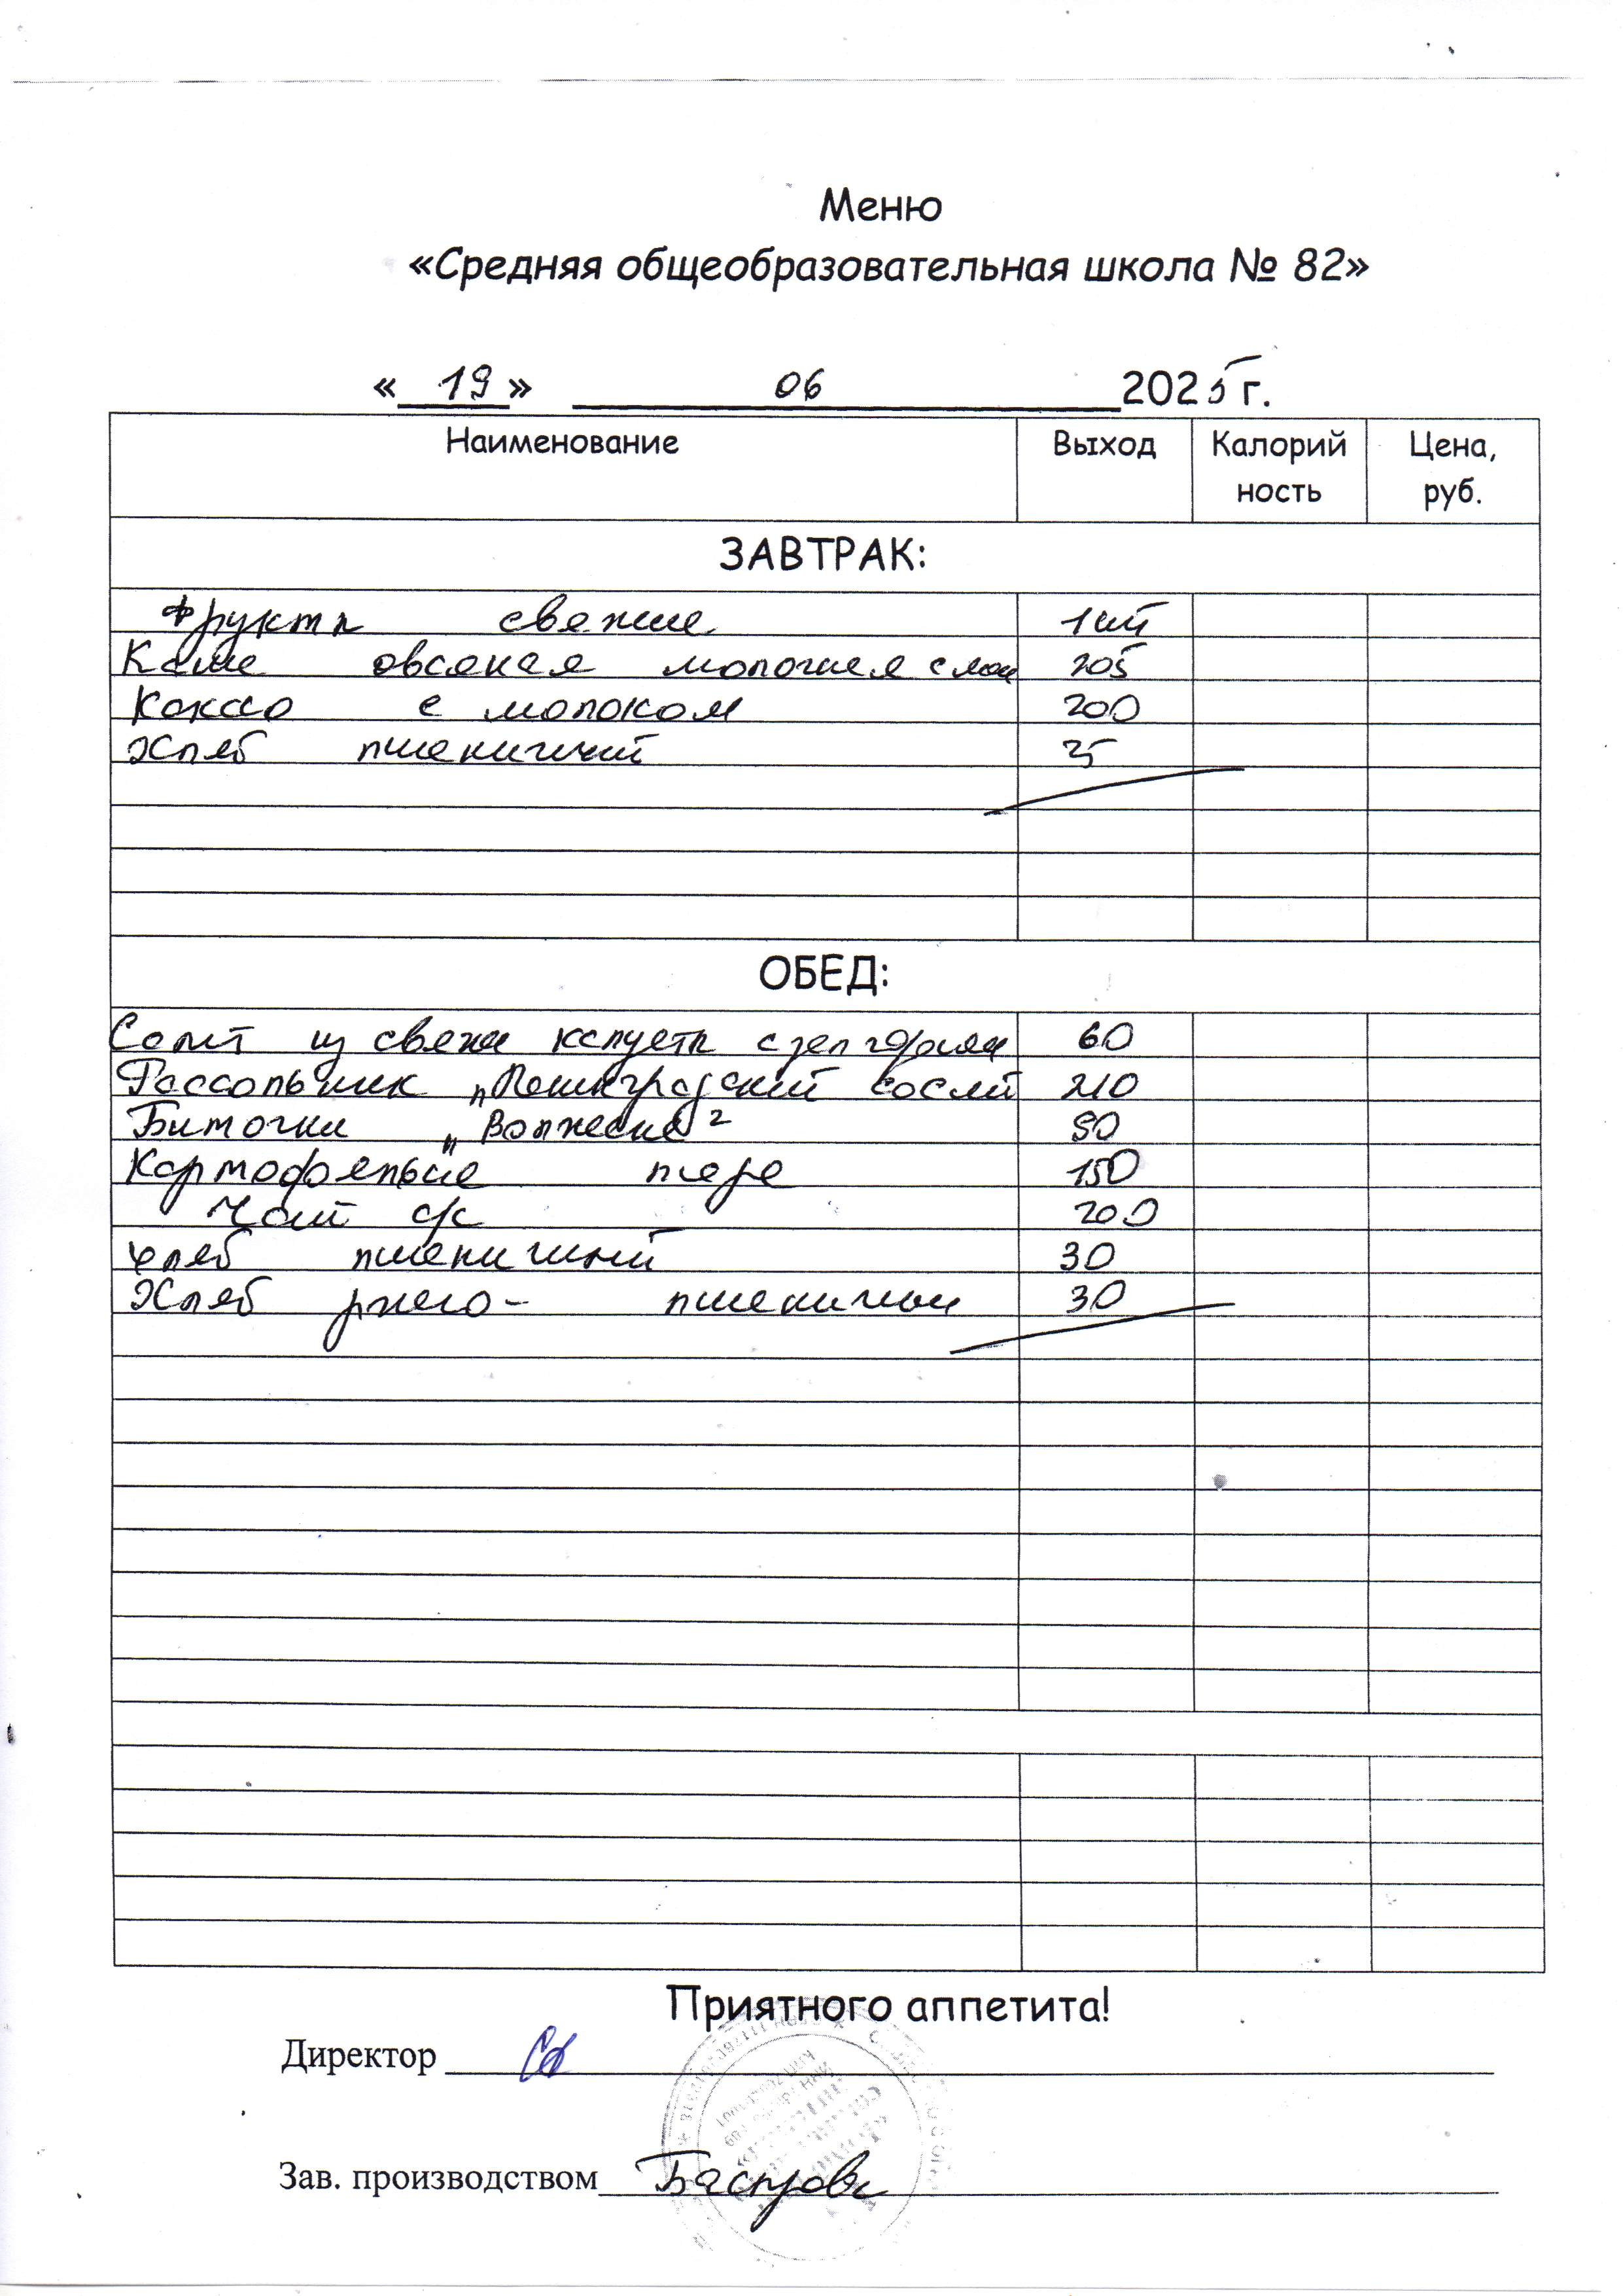 Меню
«Средняя общеобразовательная школа № 82»
« 19 » 06 2025 г.
Наименование Выход Калорий Цена,
ность руб.
ЗАВТРАК:
Фрукты свежие 1шт
Каша овсяная молочная с мас 205
Какао с молоком 200
Хлеб пшеничный
ОБЕД:
Салат из свежи капусты с 60
Рассольник „Ленинградский со см 210
Биточки „Волжские"
Картофельное пюре 150
Чай с/с 200
хлеб пшеничный 30
Хлеб ржано- пшеничный 30
Приятного аппетита!
Директор
Зав. производством